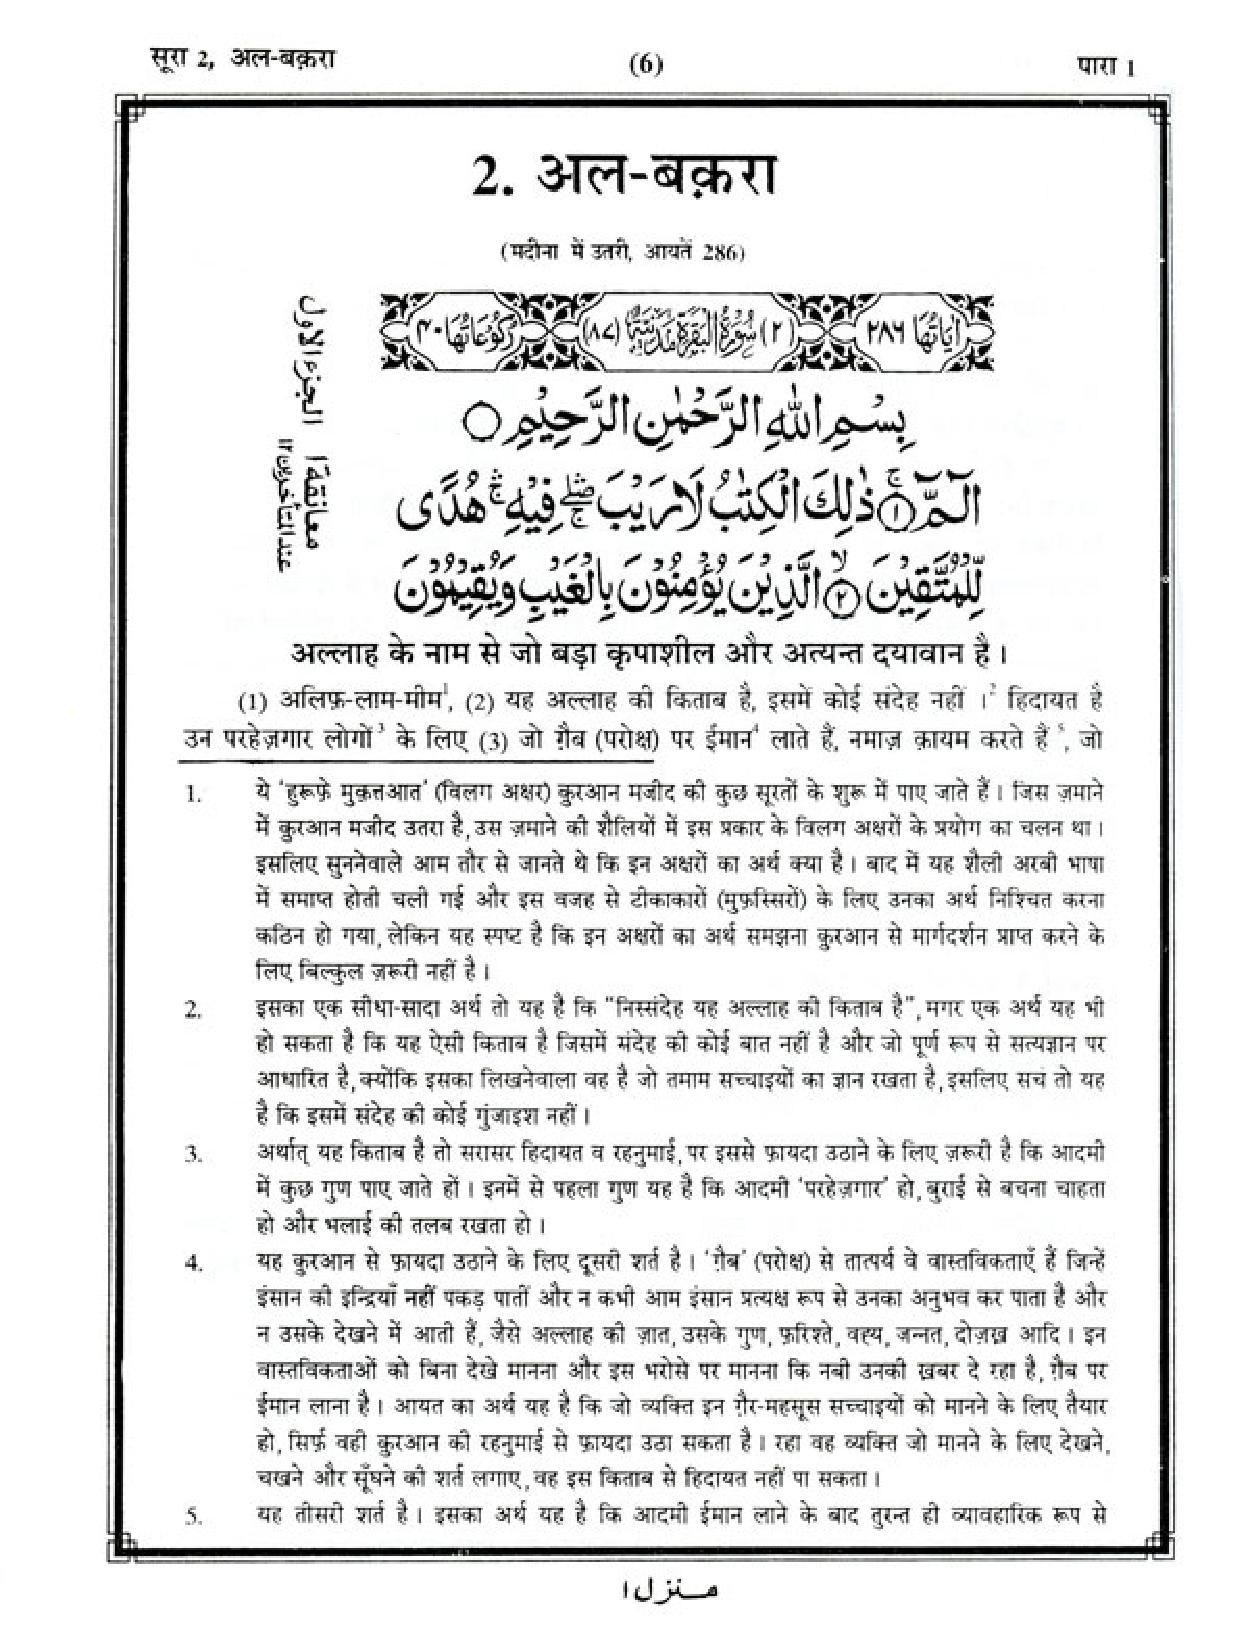 सूरा 2, अल-बक़रा
(6)
पारा 1
2. अल-बक़रा
(मदीना में उतरी, आयतें 286)
اٰیَاتُهَا ٢٨٦
(٢) سُوْرَةُ الْبَقَرَةِ مَدَنِيَّةٌ (٨٧)
رُكُوْعَاتُهَا ٤٠
الجزء الاول
معانقة ١
عند المتأخرين ١٢
بِسْمِ اللّٰهِ الرَّحْمٰنِ الرَّحِيْمِ ○
الٓمّٓ ۚ﴿١﴾ ذٰلِكَ الْكِتٰبُ لَا رَيْبَ ۛۖۚ فِيْهِ ۛۚ هُدًى
لِّلْمُتَّقِيْنَ ۙ﴿٢﴾ الَّذِيْنَ يُؤْمِنُوْنَ بِالْغَيْبِ وَيُقِيْمُوْنَ
अल्लाह के नाम से जो बड़ा कृपाशील और अत्यन्त दयावान है।
(1) अलिफ़-लाम-मीम¹, (2) यह अल्लाह की किताब है, इसमें कोई संदेह नहीं ।² हिदायत है
उन परहेज़गार लोगों³ के लिए (3) जो ग़ैब (परोक्ष) पर ईमान⁴ लाते हैं, नमाज़ क़ायम करते हैं⁵, जो
1. ये 'हुरूफ़े मुक़त्तआत' (विलग अक्षर) क़ुरआन मजीद की कुछ सूरतों के शुरू में पाए जाते हैं। जिस ज़माने
में क़ुरआन मजीद उतरा है, उस ज़माने की शैलियों में इस प्रकार के विलग अक्षरों के प्रयोग का चलन था।
इसलिए सुननेवाले आम तौर से जानते थे कि इन अक्षरों का अर्थ क्या है। बाद में यह शैली अरबी भाषा
में समाप्त होती चली गई और इस वजह से टीकाकारों (मुफ़स्सिरों) के लिए उनका अर्थ निश्चित करना
कठिन हो गया, लेकिन यह स्पष्ट है कि इन अक्षरों का अर्थ समझना क़ुरआन से मार्गदर्शन प्राप्त करने के
लिए बिल्कुल ज़रूरी नहीं है।
2. इसका एक सीधा-सादा अर्थ तो यह है कि "निस्संदेह यह अल्लाह की किताब है", मगर एक अर्थ यह भी
हो सकता है कि यह ऐसी किताब है जिसमें संदेह की कोई बात नहीं है और जो पूर्ण रूप से सत्यज्ञान पर
आधारित है, क्योंकि इसका लिखनेवाला वह है जो तमाम सच्चाइयों का ज्ञान रखता है, इसलिए सच तो यह
है कि इसमें संदेह की कोई गुंजाइश नहीं।
3. अर्थात् यह किताब है तो सरासर हिदायत व रहनुमाई, पर इससे फ़ायदा उठाने के लिए ज़रूरी है कि आदमी
में कुछ गुण पाए जाते हों। इनमें से पहला गुण यह है कि आदमी 'परहेज़गार' हो, बुराई से बचना चाहता
हो और भलाई की तलब रखता हो।
4. यह क़ुरआन से फ़ायदा उठाने के लिए दूसरी शर्त है। 'ग़ैब' (परोक्ष) से तात्पर्य वे वास्तविकताएँ हैं जिन्हें
इंसान की इन्द्रियाँ नहीं पकड़ पातीं और न कभी आम इंसान प्रत्यक्ष रूप से उनका अनुभव कर पाता है और
न उसके देखने में आती हैं, जैसे अल्लाह की ज़ात, उसके गुण, फ़रिश्ते, वह्य, जन्नत, दोज़ख़ आदि। इन
वास्तविकताओं को बिना देखे मानना और इस भरोसे पर मानना कि नबी उनकी ख़बर दे रहा है, ग़ैब पर
ईमान लाना है। आयत का अर्थ यह है कि जो व्यक्ति इन ग़ैर-महसूस सच्चाइयों को मानने के लिए तैयार
हो, सिर्फ़ वही क़ुरआन की रहनुमाई से फ़ायदा उठा सकता है। रहा वह व्यक्ति जो मानने के लिए देखने,
चखने और सूँघने की शर्त लगाए, वह इस किताब से हिदायत नहीं पा सकता।
5. यह तीसरी शर्त है। इसका अर्थ यह है कि आदमी ईमान लाने के बाद तुरन्त ही व्यावहारिक रूप से
منزل ١